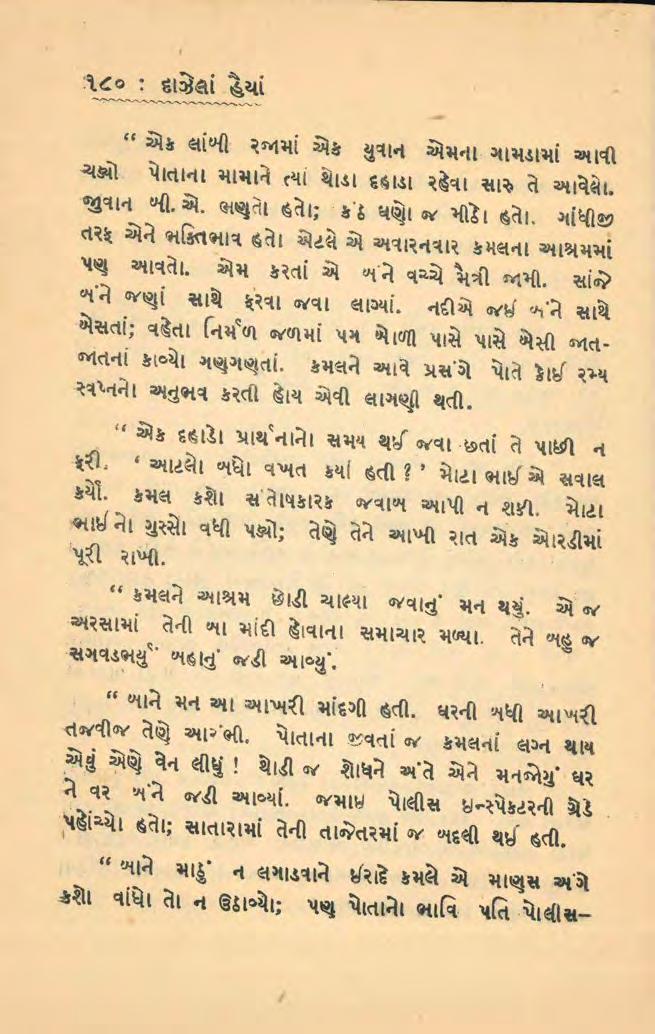 ૧૮૦ : દાઝેલાં હૈયાં
“ એક લાંબી રજામાં એક યુવાન એમના ગામડામાં આવી
ચડ્યો પોતાના મામાને ત્યાં થોડા દહાડા રહેવા સારુ તે આવેલો.
જુવાન બી. એ. ભણતો હતો; કંઠ ઘણો જ મીઠો હતો. ગાંધીજી
તરફ એને ભક્તિભાવ હતો એટલે એ અવારનવાર કમલના આશ્રમમાં
પણ આવતો. એમ કરતાં એ બંને વચ્ચે મૈત્રી જામી. સાંજે
બંને જણાં સાથે ફરવા જવા લાગ્યાં. નદીએ જઈ બંને સાથે
બેસતાં; વહેતા નિર્મળ જળમાં પગ બોળી પાસે પાસે બેસી જાત-
જાતનાં કાવ્યો ગણગણતાં. કમલને આવે પ્રસંગે પોતે કોઈ રમ્ય
સ્વપ્નનો અનુભવ કરતી હોય એવી લાગણી થતી.
“ એક દહાડો પ્રાર્થનાનો સમય થઈ જવા છતાં તે પાછી ન
ફરી. ‘ આટલો બધો વખત ક્યાં હતી ? ’ મોટા ભાઈ એ સવાલ
કર્યો. કમલ કશો સંતોષકારક જવાબ આપી ન શકી. મોટા
ભાઈનો ગુસ્સો વધી પડ્યો; તેણે તેને આખી રાત એક ઓરડીમાં
પૂરી રાખી.
“ કમલને આશ્રમ છોડી ચાલ્યા જવાનું મન થયું. એ જ
અરસામાં તેની બા માંદી હોવાના સમાચાર મળ્યા. તેને બહુ જ
સગવડભર્યું બહાનું જડી આવ્યું.
“ બાને મન આ આખરી માંદગી હતી. ઘરની બધી આખરી
તજવીજ તેણે આરંભી. પોતાના જીવતાં જ કમલનાં લગ્ન થાય
એવું એણે વેન લીધું ! થોડી જ શોધને અંતે એને મનજોગું ઘર
ને વર બંને જડી આવ્યાં. જમાઇ પોલીસ ઇન્સ્પેક્ટરની ગ્રેડે
પહોંચ્યો હતો; સાતારામાં તેની તાજેતરમાં જ બદલી થઈ હતી.
“ બાને માઠું ન લગાડવાને ઈરાદે કમલે એ માણસ અંગે
કશો વાંધો તો ન ઉઠાવ્યો; પણ પોતાનો ભાવિ પતિ પોલીસ–